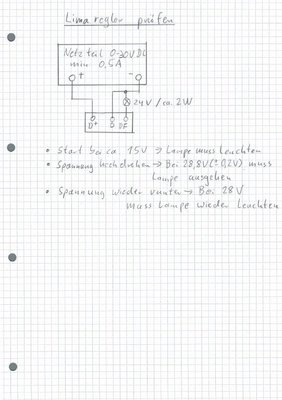 Limaregler prüfen
Netzteil 0-30V DC
min 0,5A
+ -
24V / ca. 2W
D+ D- DF
• Start bei ca. 15V → Lampe muss leuchten
• Spannung hochdrehen → Bei 28,8V (± 0,2V) muss
Lampe ausgehen
• Spannung wieder runter → Bei 28V
muss Lampe wieder leuchten